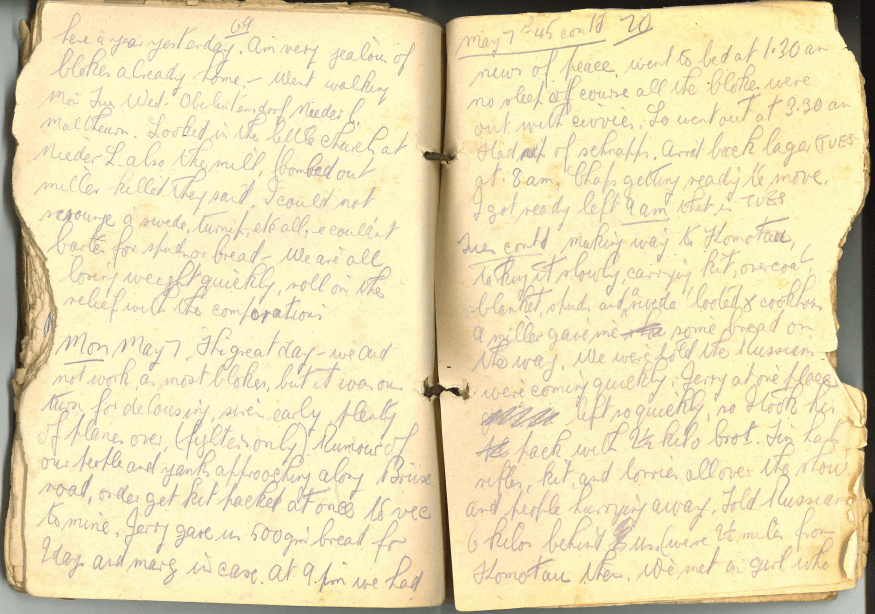 69
here a year yesterday. Am very jealous of
blokes already home – Went walking
Mon Tue Wed. Oberleutensdorf, Nieder L.
Maltheurn. Looked in the little church at
Nieder L. also the mill, (bombed out
miller killed they said, I could not
scrounge a swede, turnip, etc at all, & couldn't
barter for spuds or bread – We are all
losing weight quickly, roll on the
relief with the comporations
Mon May 7. The great day – we did
not work, as most blokes, but it was our
turn for delousing, siren early plenty
of planes over, (fighters only) Rumours of
our people and yanks approaching along Brüx
road, order get kit packed at once to
to mine. Jerry gave us 500gm bread for
2 days and marg in case. At 9. pm we had
May 7th 45 contd 70
news of peace. went to bed at 1.30 am
no sleep off course all the blokes were
out with civvies. So went out at 3.30 am
Had of schnapps. Arrd back lager (TUES
at 8 am. Chaps getting ready to move.
I got ready left 9 am that is TUES
Tues contd making way to Homotau,
taking it slowly, carrying kit, overcoat,
blanket, spuds and a swede looted & cooked
a miller gave me some bread on
the way. We were told the Russians
were coming quickly. Jerry at one place
left so quickly, so I took his
pack with 2½ kilo brot. Tin hats
rifles, kit and lorries all over the show
and people hurrying away. Told Russians
6 kilos behind us, (were 2½ miles from
Homotau then. We met a girl who